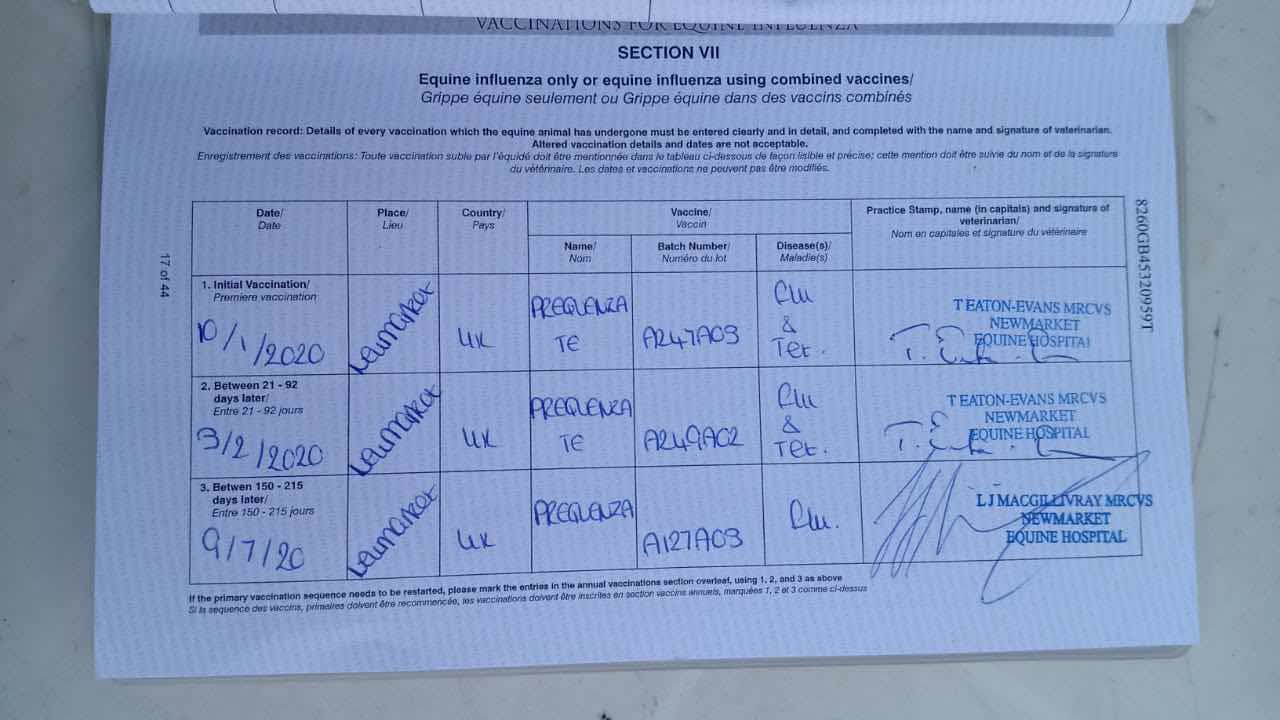 VACCINATIONS FOR EQUINE INFLUENZA
SECTION VII
Equine influenza only or equine influenza using combined vaccines/
Grippe équine seulement ou Grippe équine dans des vaccins combinés
Vaccination record: Details of every vaccination which the equine animal has undergone must be entered clearly and in detail, and completed with the name and signature of veterinarian.
Altered vaccination details and dates are not acceptable.
Enregistrement des vaccinations: Toute vaccination subie par l'équidé doit être mentionnée dans le tableau ci-dessous de façon lisible et précise; cette mention doit être suivie du nom et de la signature
du vétérinaire. Les dates et vaccinations ne peuvent pas être modifiés.
Date/
Date
Place/
Lieu
Country/
Pays
Vaccine/
Vaccin
Name/
Nom
Batch Number/
Numéro du lot
Disease(s)/
Maladie(s)
Practice Stamp, name (in capitals) and signature of
veterinarian/
Nom en capitales et signature du vétérinaire
1. Initial Vaccination/
Premiere vaccination
10/1/2020
Newmarket
UK
PREQUENZA
TE
A247A03
Flu
&
Tet.
T EATON-EVANS MRCVS
NEWMARKET
EQUINE HOSPITAL
2. Between 21 - 92
days later/
Entre 21 - 92 jours
3/2/2020
Newmarket
UK
PREQUENZA
TE
A249A02
Flu
&
Tet.
T EATON-EVANS MRCVS
NEWMARKET
EQUINE HOSPITAL
3. Betwen 150 - 215
days later/
Entre 150 - 215 jours
9/7/20
Newmarket
UK
PREQUENZA
A127A03
Flu.
L J MACGILLIVRAY MRCVS
NEWMARKET
EQUINE HOSPITAL
If the primary vaccination sequence needs to be restarted, please mark the entries in the annual vaccinations section overleaf, using 1, 2, and 3 as above
Si la sequence des vaccins, primaires doivent être recommencée, les vaccinations doivent être inscrites en section vaccins annuels, marquées 1, 2 et 3 comme ci-dessus
17 of 44
8260GB45320959T